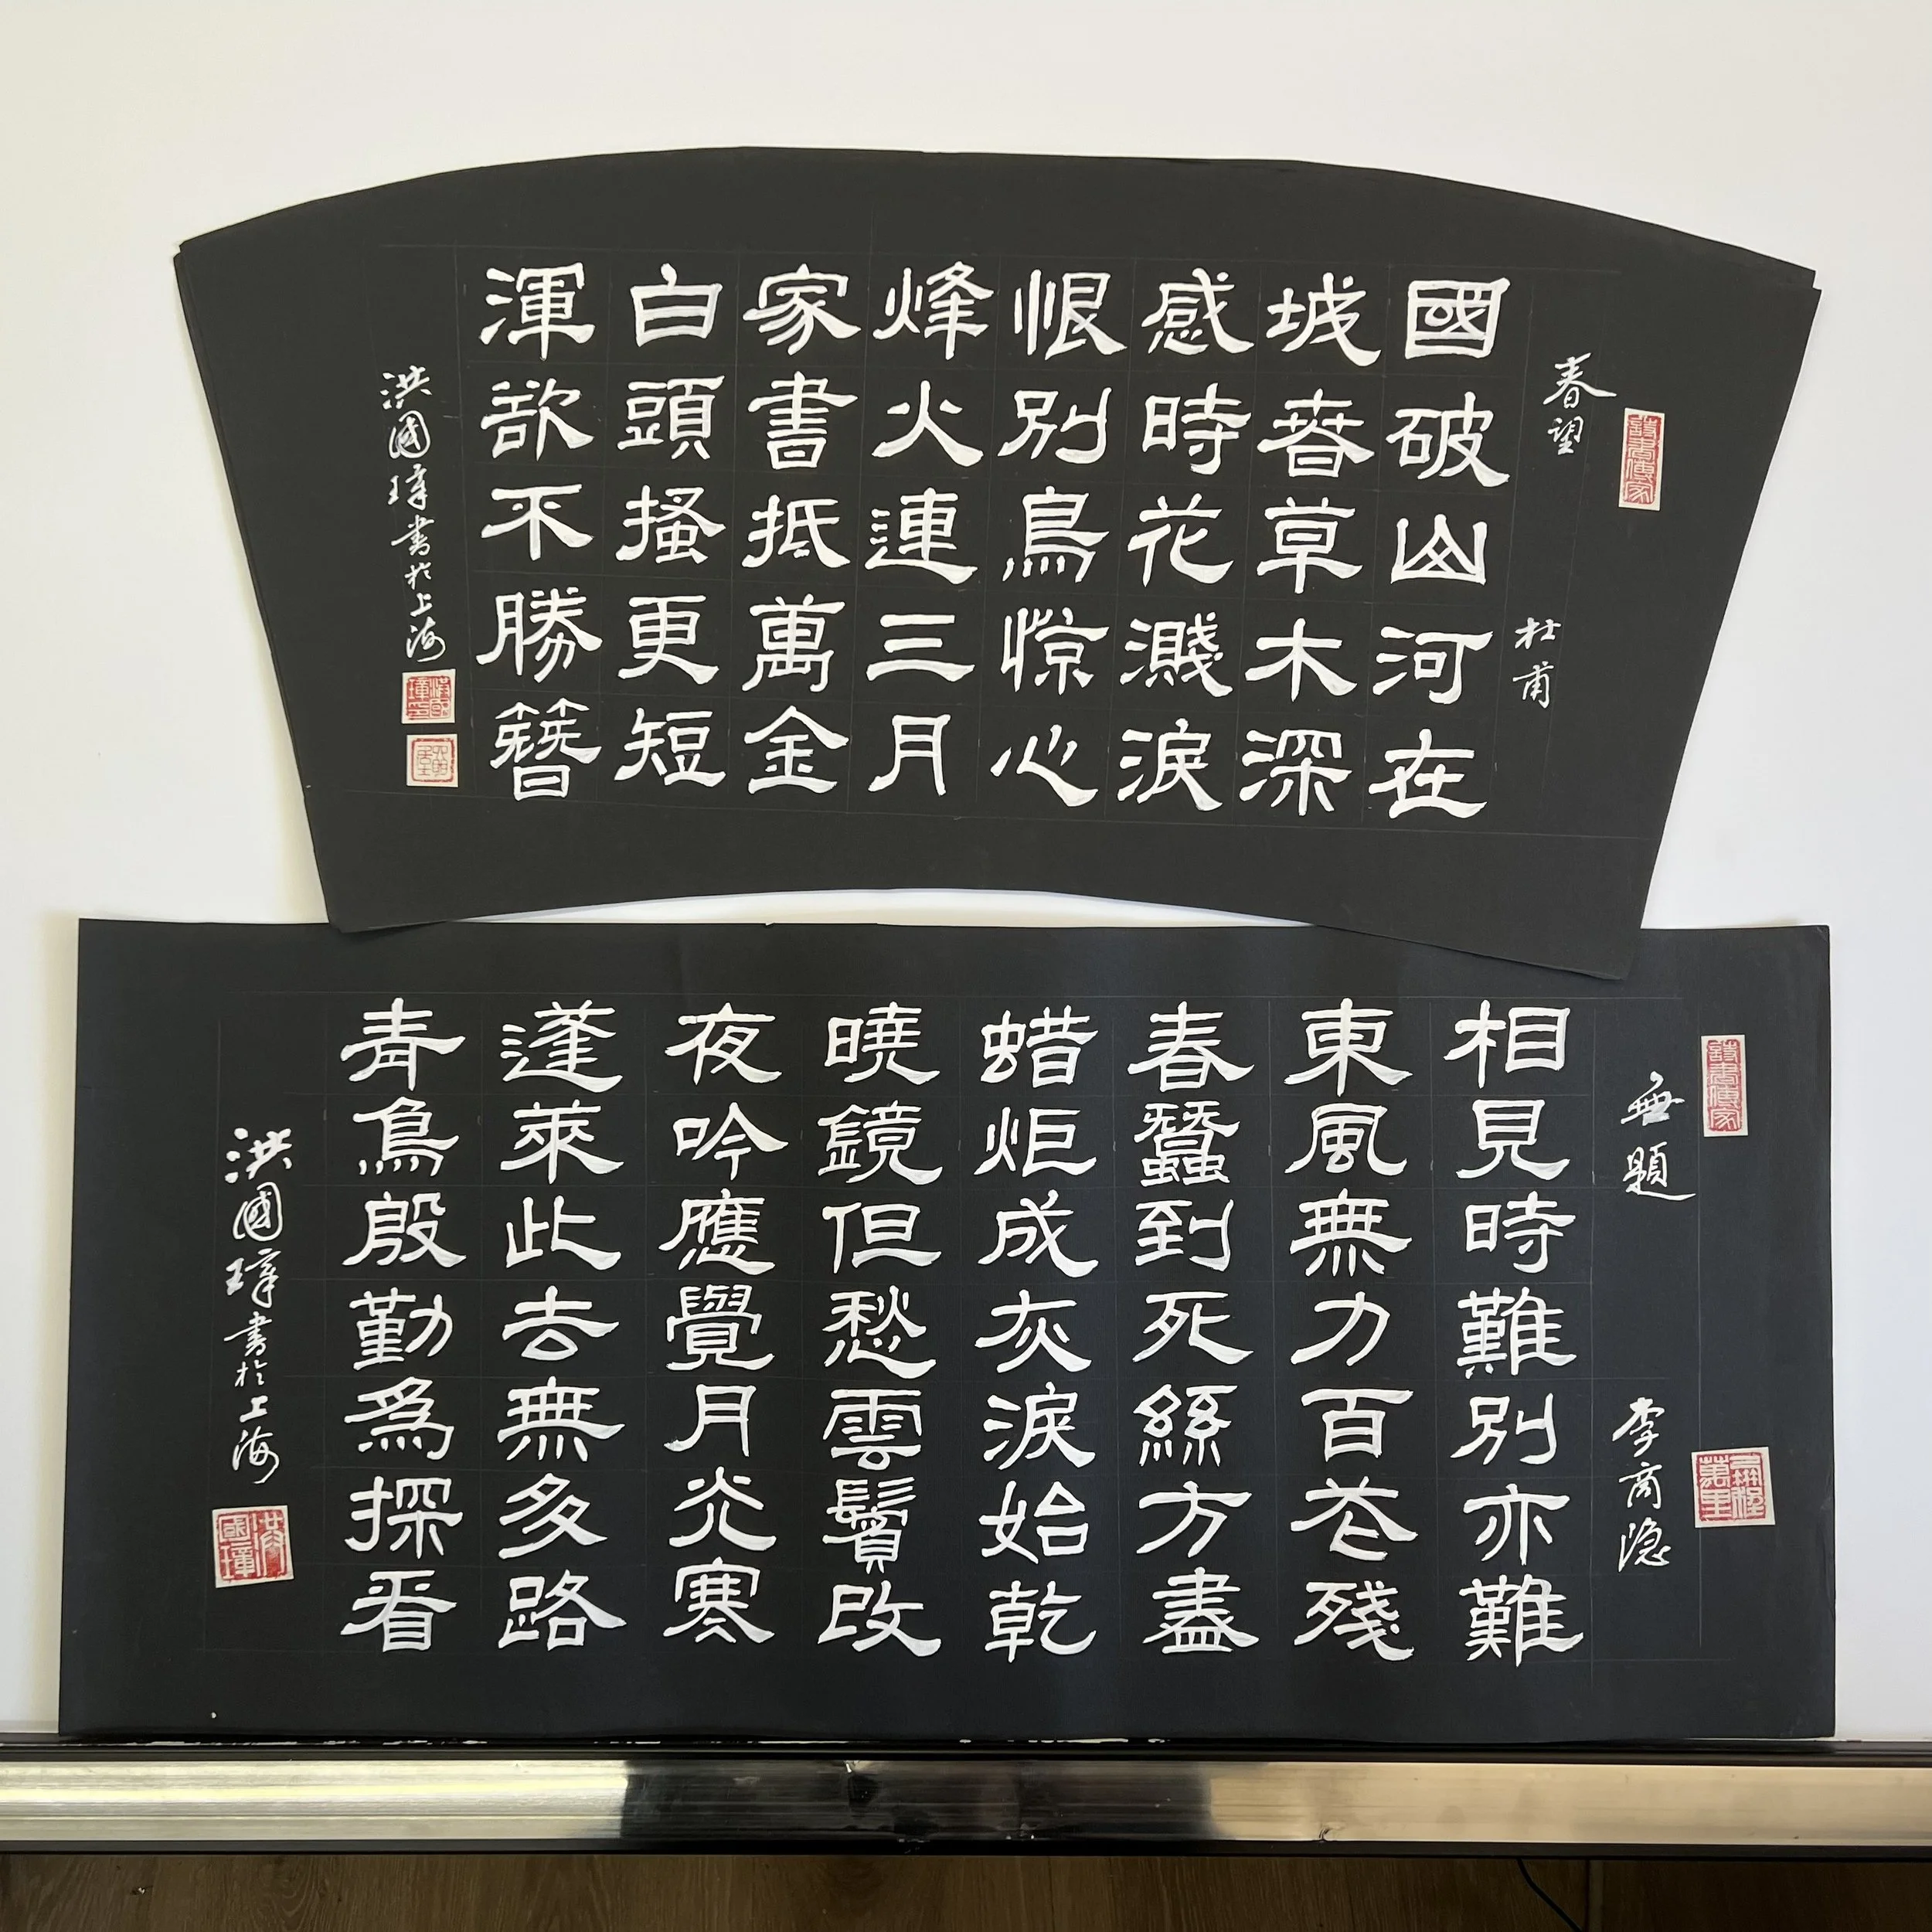 春望
杜甫
國破山河在
城春草木深
感時花濺淚
恨別鳥惊心
烽火連三月
家書抵萬金
白頭搔更短
渾欲不勝簪
洪國璋書於上海
詩書傳家
無題
李商隐
相見時難別亦難
東風無力百花殘
春蠶到死絲方盡
蜡炬成灰淚始乾
曉鏡但愁雲鬢改
夜吟應覺月光寒
蓬萊此去無多路
青鳥殷勤為探看
洪國璋書於上海
詩書傳家
洪國璋